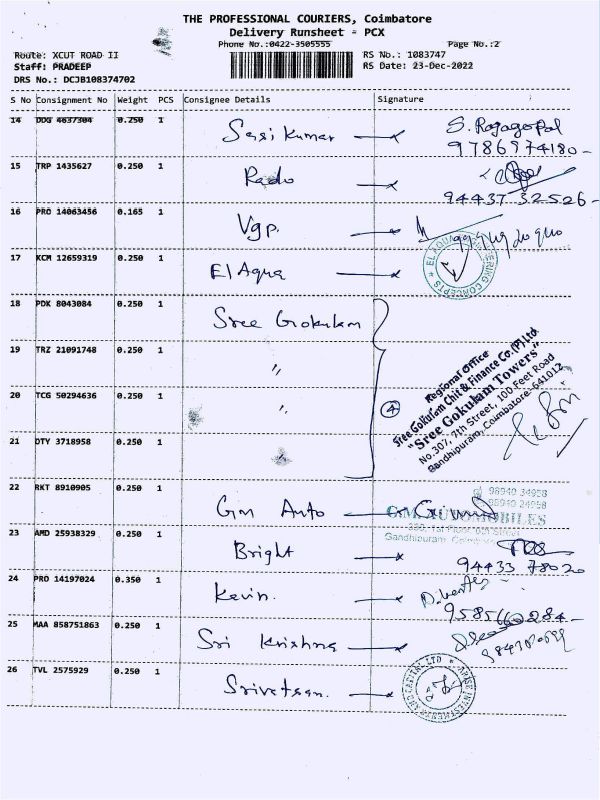 THE PROFESSIONAL COURIERS, Coimbatore
Delivery Runsheet - PCX
Phone No.:0422-3505555 Page No.:2
Route: XCUT ROAD II RS No.: 1083747
Staff: PRADEEP RS Date: 23-Dec-2022
DRS No.: DCJB108374702
S No Consignment No Weight PCS Consignee Details Signature
14 DDG 4637304 0.250 1 Sasi Kumar S. Rajagopal
9786974180
15 TRP 1435627 0.250 1 Rado
94437 32526
16 PRO 14063456 0.165 1 Vgp.
17 KCM 12659319 0.250 1 El Aqua
18 PDK 8043084 0.250 1 Sree Gokulam
19 TRZ 21091748 0.250 1 "
20 TCG 50294636 0.250 1 " 4
21 DTY 3718958 0.250 1
Regional Office
Sree Gokulam Chit & Finance Co.(P) Ltd.
"Sree Gokulam Towers"
No.307, 7th Street, 100 Feet Road
Gandhipuram, Coimbatore-641012
22 RKT 8910905 0.250 1 Gm Auto
98940 34958
98940 24958
G.M. AUTOMOBILES
Gandhipuram,
23 AMD 25938329 0.250 1 Bright
94433 78020
24 PRO 14197024 0.350 1 Kevin.
25 MAA 858751863 0.250 1 Sri Krishna
26 TVL 2575929 0.250 1 Srivatsan.